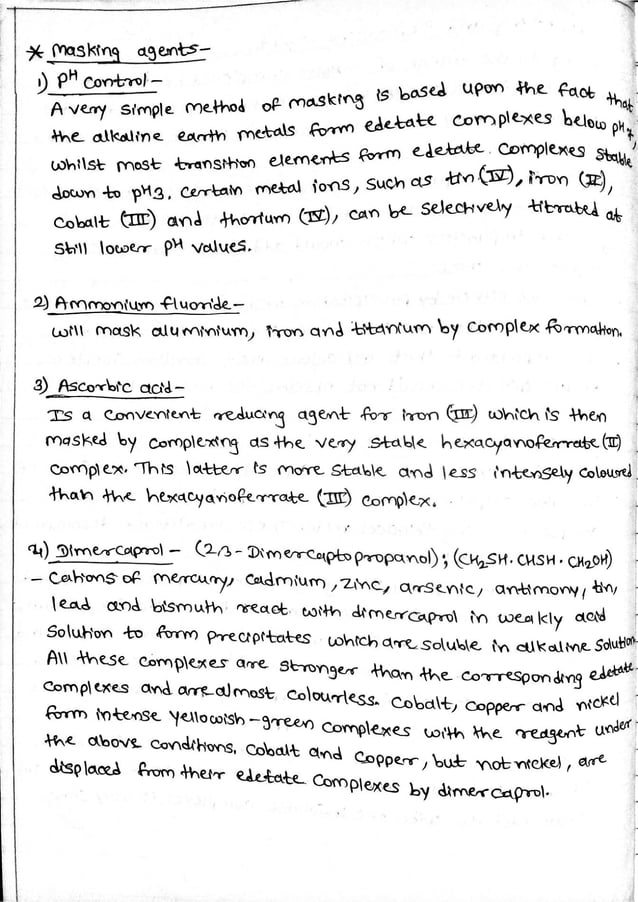 * Masking agents-
1) PH Control-
A very simple method of masking is based upon the fact that
the alkaline earth metals form edetate complexes below pH 7,
whilst most transition elements form edetate. Complexes stable
down to pH3, Certain metal ions, such as tin (IV), iron (II),
Cobalt (III) and thorium (IV), can be selectively titrated at
still lower pH values.
2) Ammonium fluoride-
will mask aluminium, iron and titanium by complex formation.
3) Ascorbic acid-
Is a convenient reducing agent for iron (III) which is then
masked by complexing as the very stable hexacyanoferrate (II)
complex. This latter is more stable and less intensely coloured
than the hexacyanoferrate (III) complex.
4) Dimercaprol - (2,3-Dimercaptopropanol); (CH2SH. CHSH. CH2OH)
- Cations of mercury, Cadmium, Zinc, arsenic, antimony, tin,
lead and bismuth react with dimercaprol in weakly acid
Solution to form precipitates which are soluble in alkaline Solution.
All these complexes are stronger than the corresponding edetate.
Complexes and are almost colourless. Cobalt, Copper and nickel
form intense yellowish-green complexes with the reagent under
the above conditions, Cobalt and Copper, but not nickel, are
displaced from their edetate Complexes by dimercaprol.